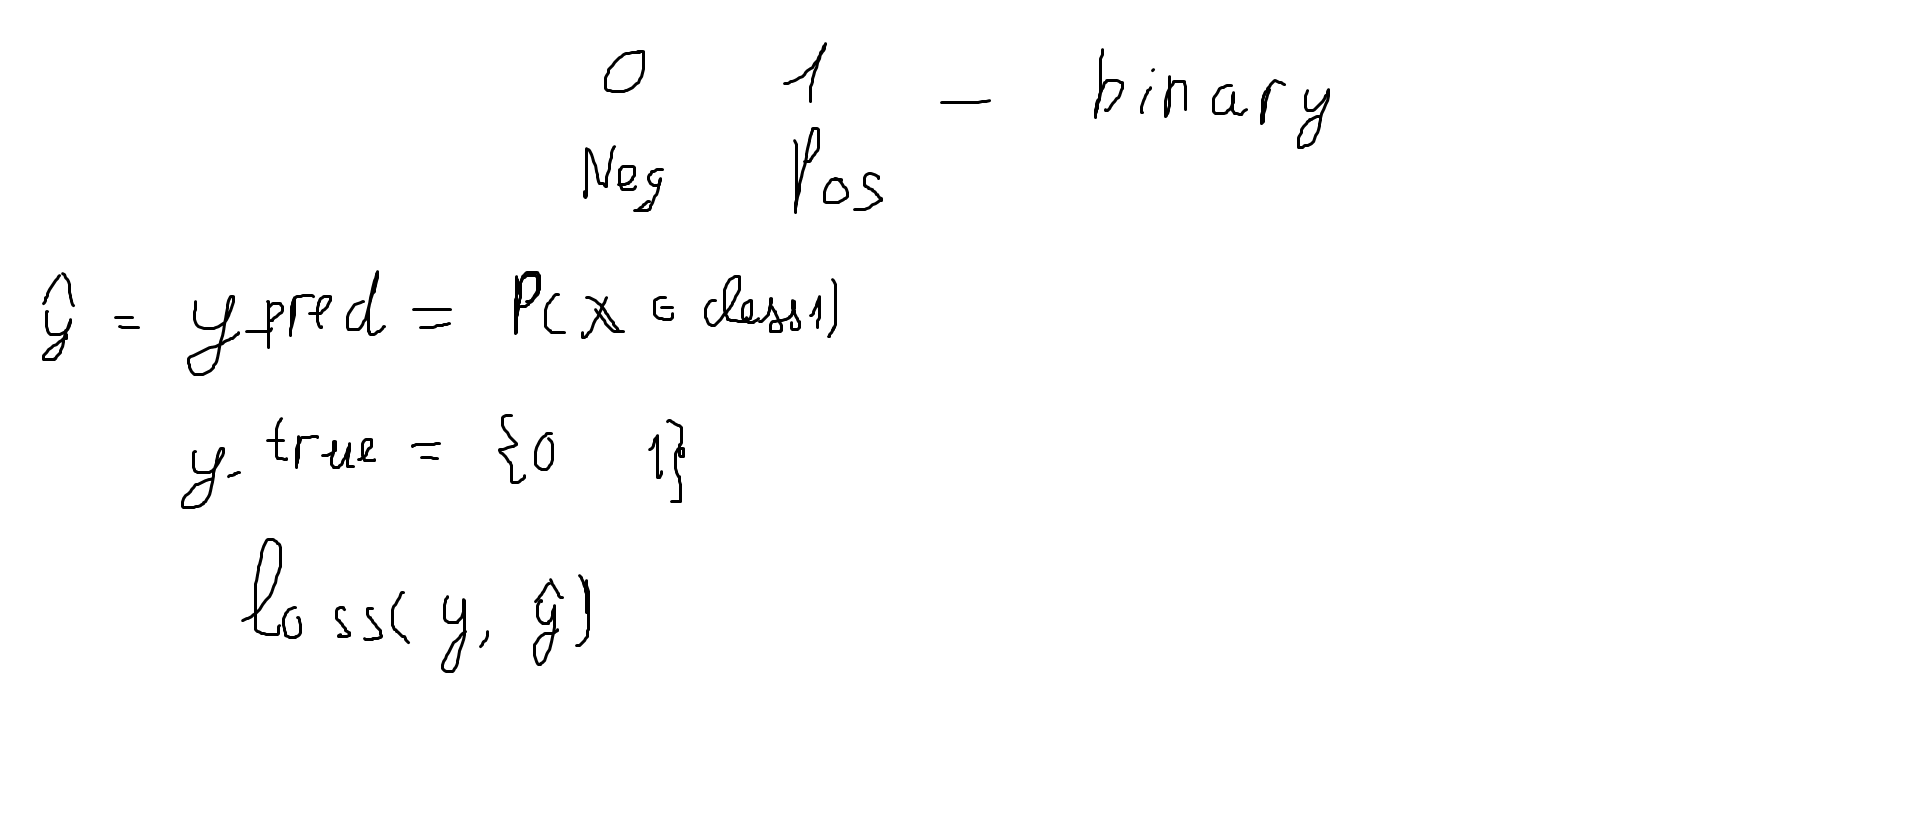 0 1 – binary
Neg Pos
ŷ = y_pred = P(x ∈ class1)
y_true = {0 1}
loss(y, ŷ)